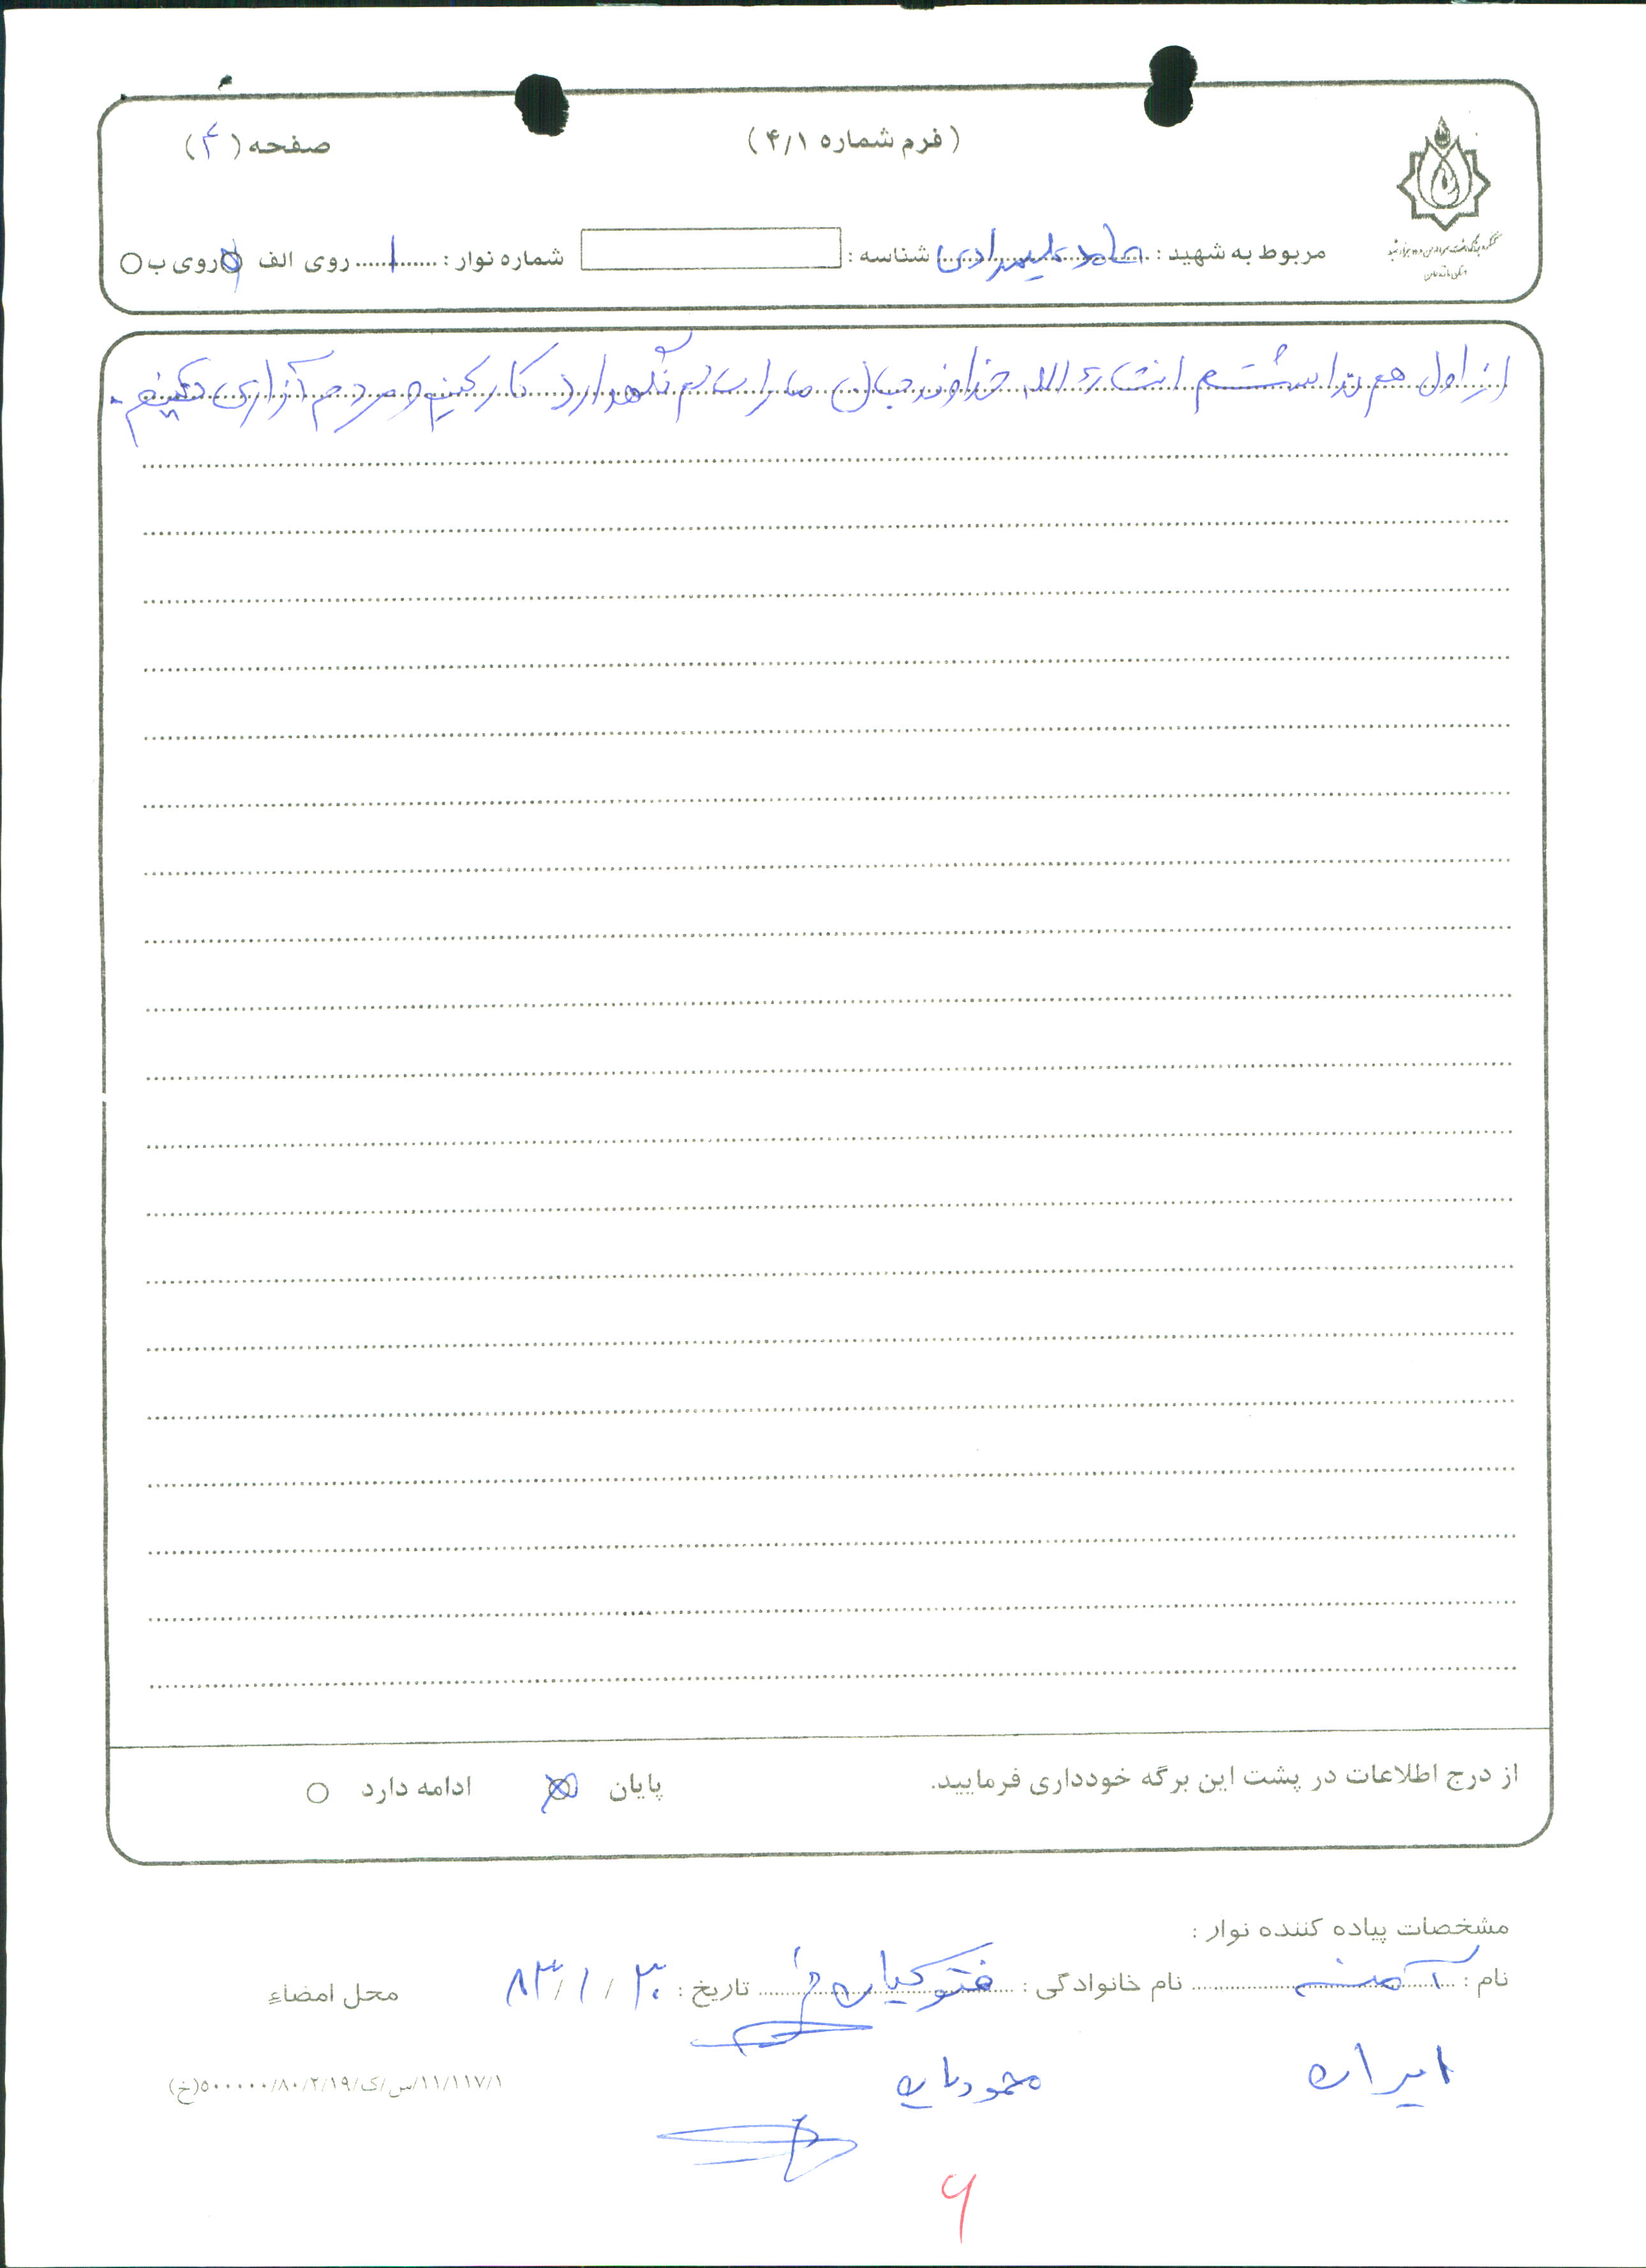 صفحه (۴)
(فرم شماره ۴/۱)
مربوط به شهید : حامد علیمرادی شناسه : شماره نوار : ۱ روی الف روی ب
از اول هم نداشتم انشاء الله خداوند جان ما را سالم نگهدارد کار کنیم و مردم آزاری نکنیم.
از درج اطلاعات در پشت این برگه خودداری فرمایید. پایان ادامه دارد
مشخصات پیاده کننده نوار :
نام : آمنه نام خانوادگی : تاریخ : ۸۳/۱/۳۰ محل امضاء
ایران
۱۱/۱۱۷/۱/س/ک/۸۰/۲/۱۹/۵۰۰۰۰۰۰(خ)
۶